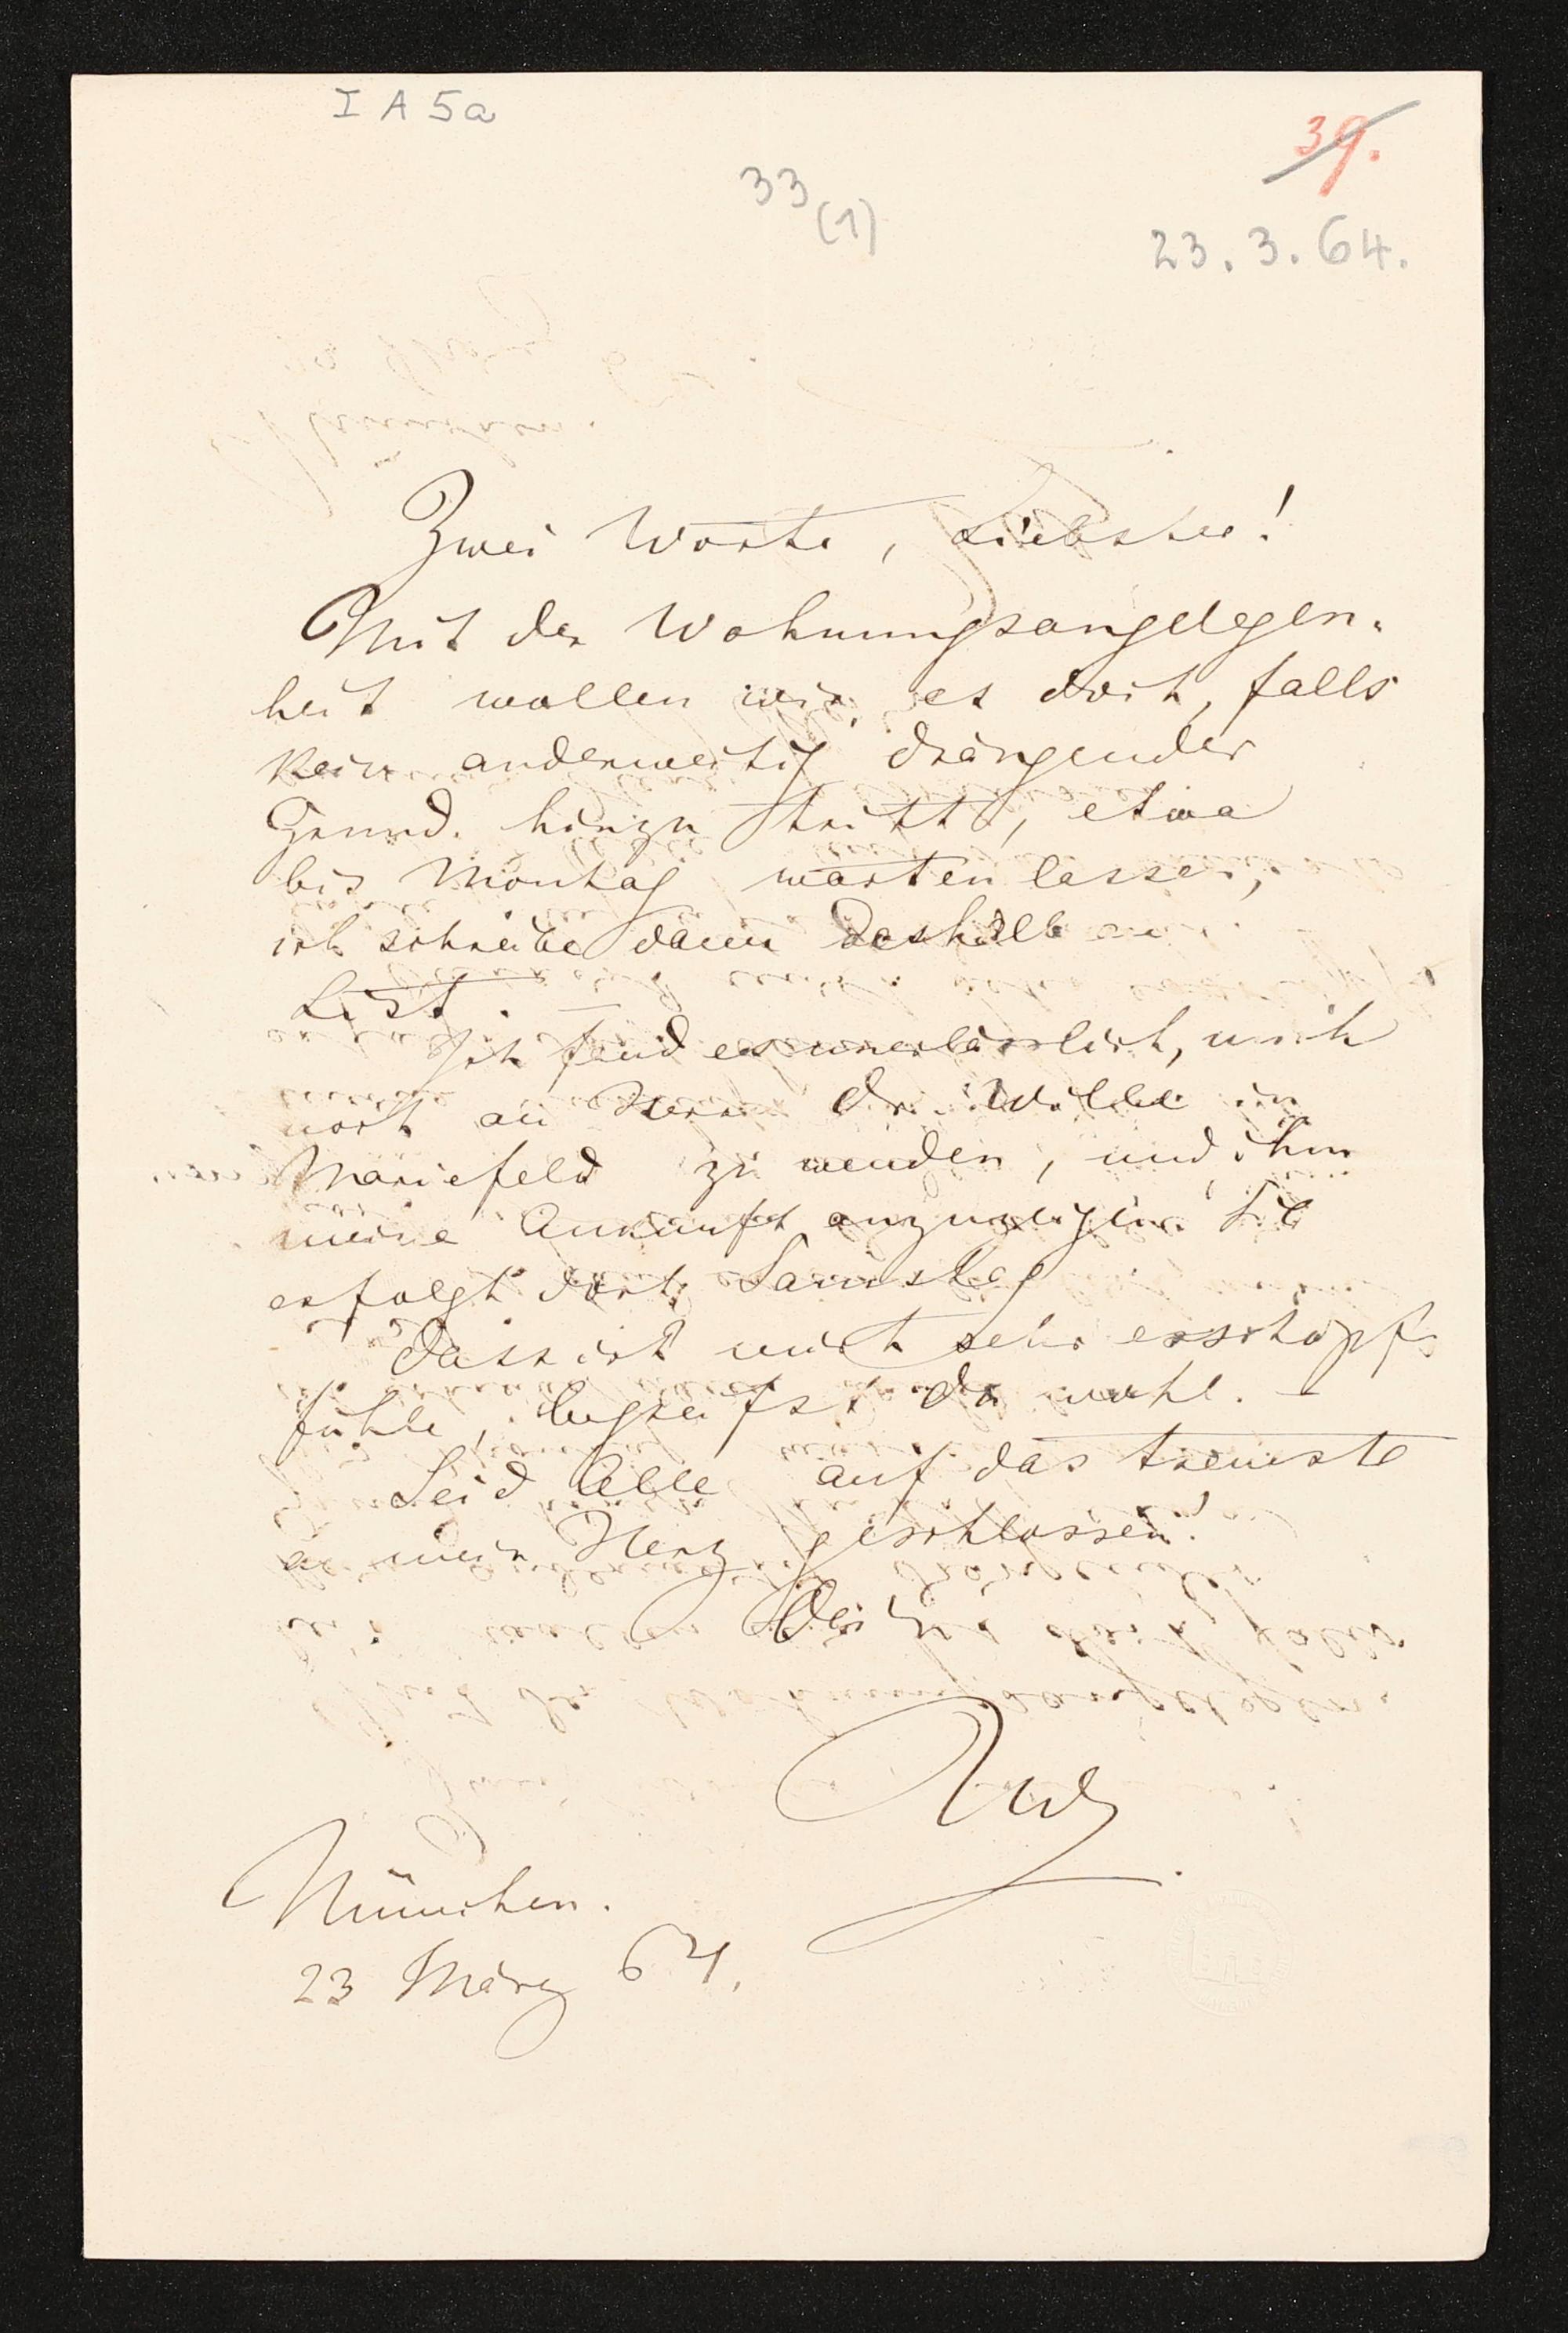 I A 5a
39.
33 (1)
23. 3. 64.
Zwei Worte, Liebster!
Mit der Wohnungsangelegen-
heit wollen wir es doch, falls
kein anderweitig drängender
Grund hinzu tritt, etwa
bis Montag warten lassen;
ich schreibe dann deshalb
Ich fand es unerlässlich, mich
noch an Herrn Dr Wille in
Mariefeld zu wenden, und ihm
meine Ankunft anzuzeigen. Sie
erfolgt dort Samstag
Dass ich mich sehr erschöpft
fühle, begreifst du wohl. –
Seid Alle auf das treueste
an mein Herz geschlossen!
Dein
München.
23 März 64.